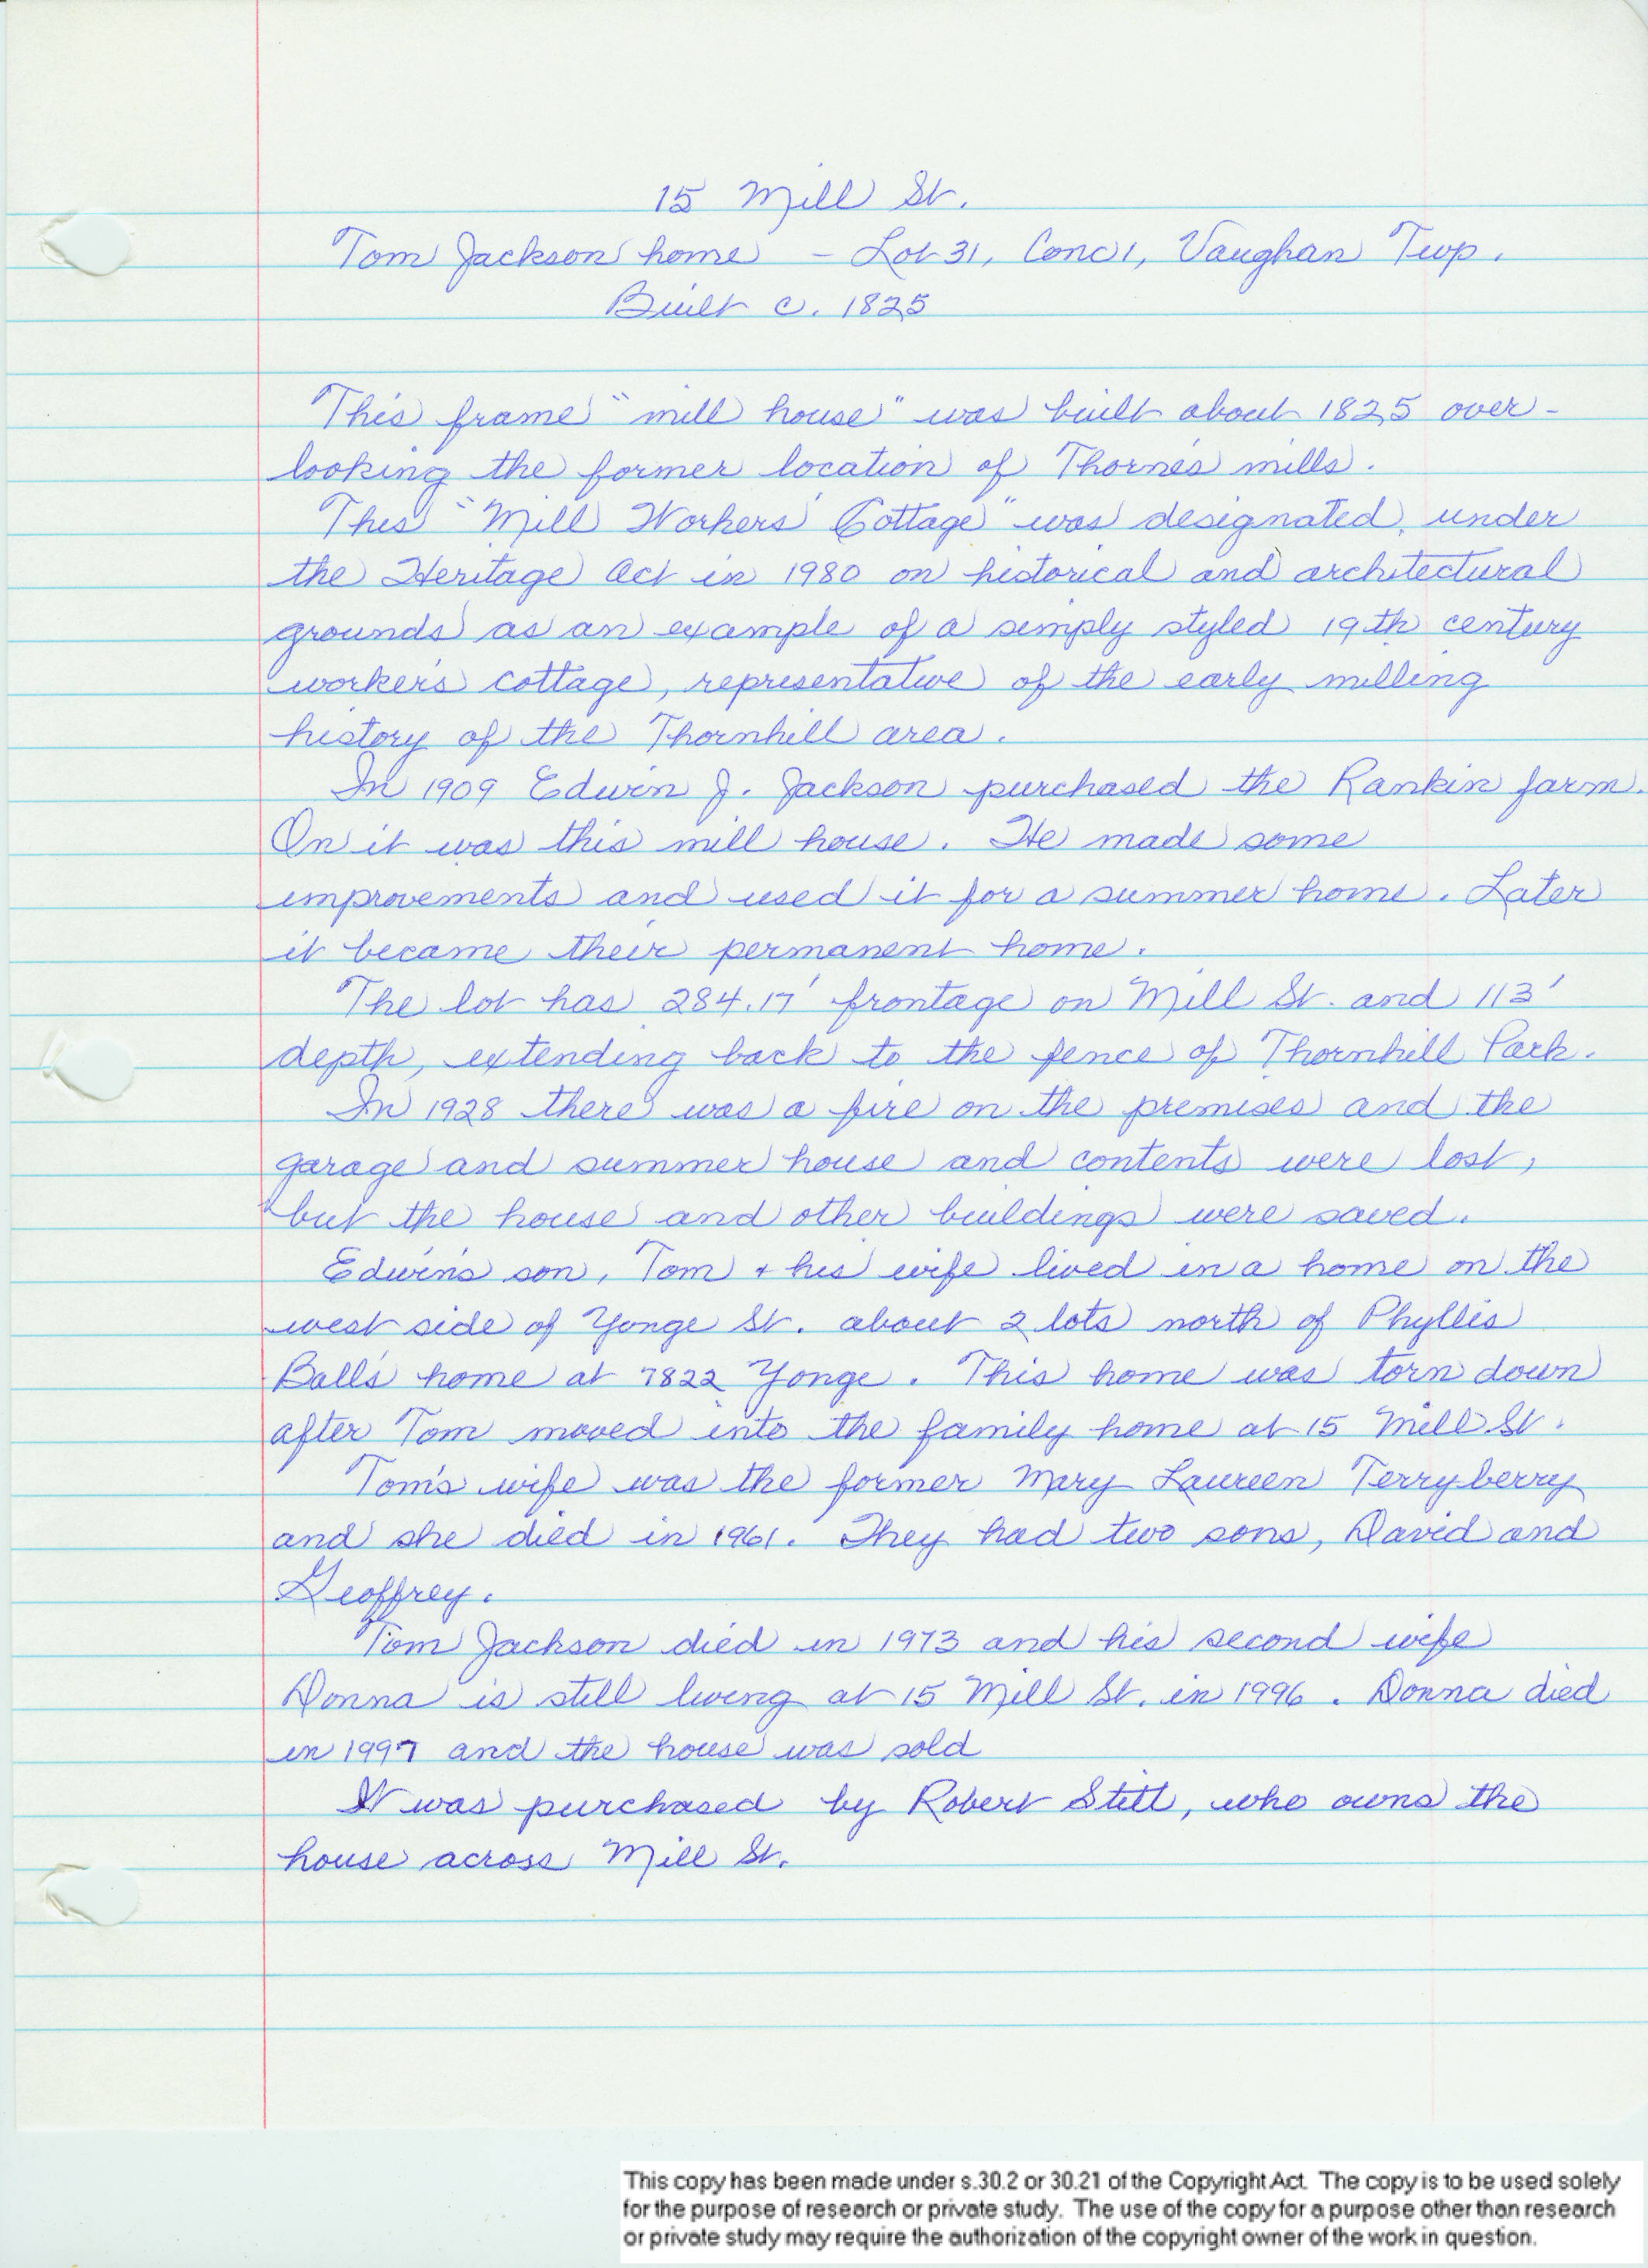 15 Mill St.
Tom Jackson home - Lot 31, Conc 1, Vaughan Twp.
Built c. 1825
This frame "mill house" was built about 1825 over-
looking the former location of Thorne's mills.
This "Mill Workers' Cottage" was designated under
the Heritage Act in 1980 on historical and architectural
grounds as an example of a simply styled 19th century
worker's cottage, representative of the early milling
history of the Thornhill area.
In 1909 Edwin J. Jackson purchased the Rankin farm.
On it was this mill house. He made some
improvements and used it for a summer home. Later
it became their permanent home.
The lot has 284.17' frontage on Mill St. and 113'
depth, extending back to the fence of Thornhill Park.
In 1928 there was a fire on the premises and the
garage and summer house and contents were lost,
but the house and other buildings were saved.
Edwin's son, Tom + his wife lived in a home on the
west side of Yonge St. about 2 lots north of Phyllis
Ball's home at 7822 Yonge. This home was torn down
after Tom moved into the family home at 15 Mill St.
Tom's wife was the former Mary Laureen Terryberry
and she died in 1961. They had two sons, David and
Geoffrey.
Tom Jackson died in 1973 and his second wife
Donna is still living at 15 Mill St. in 1996. Donna died
in 1997 and the house was sold
It was purchased by Robert Stitt, who owns the
house across Mill St.
This copy has been made under s.30.2 or 30.21 of the Copyright Act. The copy is to be used solely
for the purpose of research or private study. The use of the copy for a purpose other than research
or private study may require the authorization of the copyright owner of the work in question.